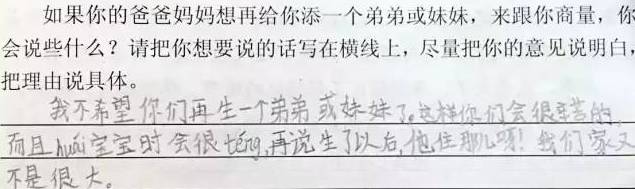 如果你的爸爸妈妈想再给你添一个弟弟或妹妹，来跟你商量，你
会说些什么？请把你想要说的话写在横线上，尽量把你的意见说明白，
把理由说具体。
我不希望你们再生一个弟弟或妹妹了。这样你们会很辛苦的，
而且huái宝宝时会很téng，再说生了以后，他住那儿呀！我们家又
不是很大。